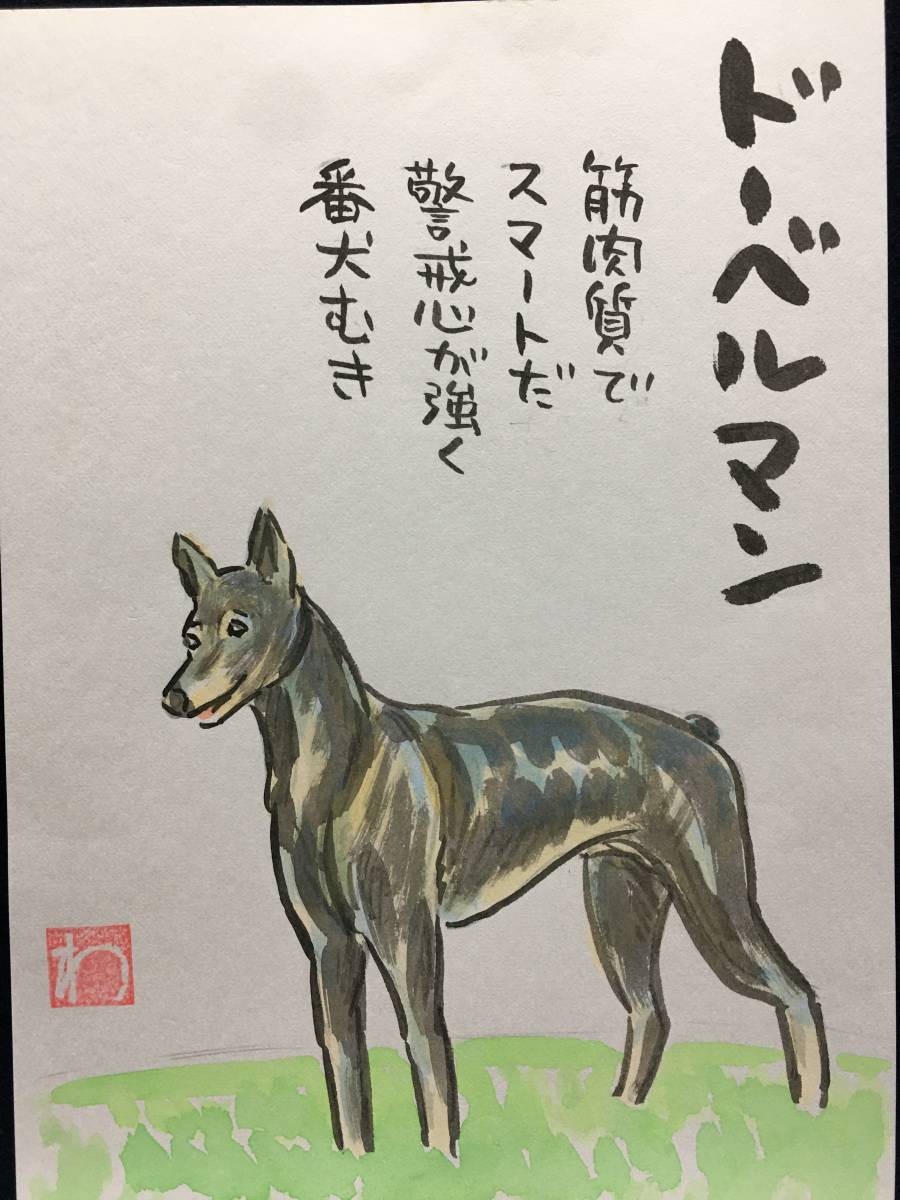 ドーベルマン
筋肉質で
スマートだ
警戒心が強く
番犬むき
わ